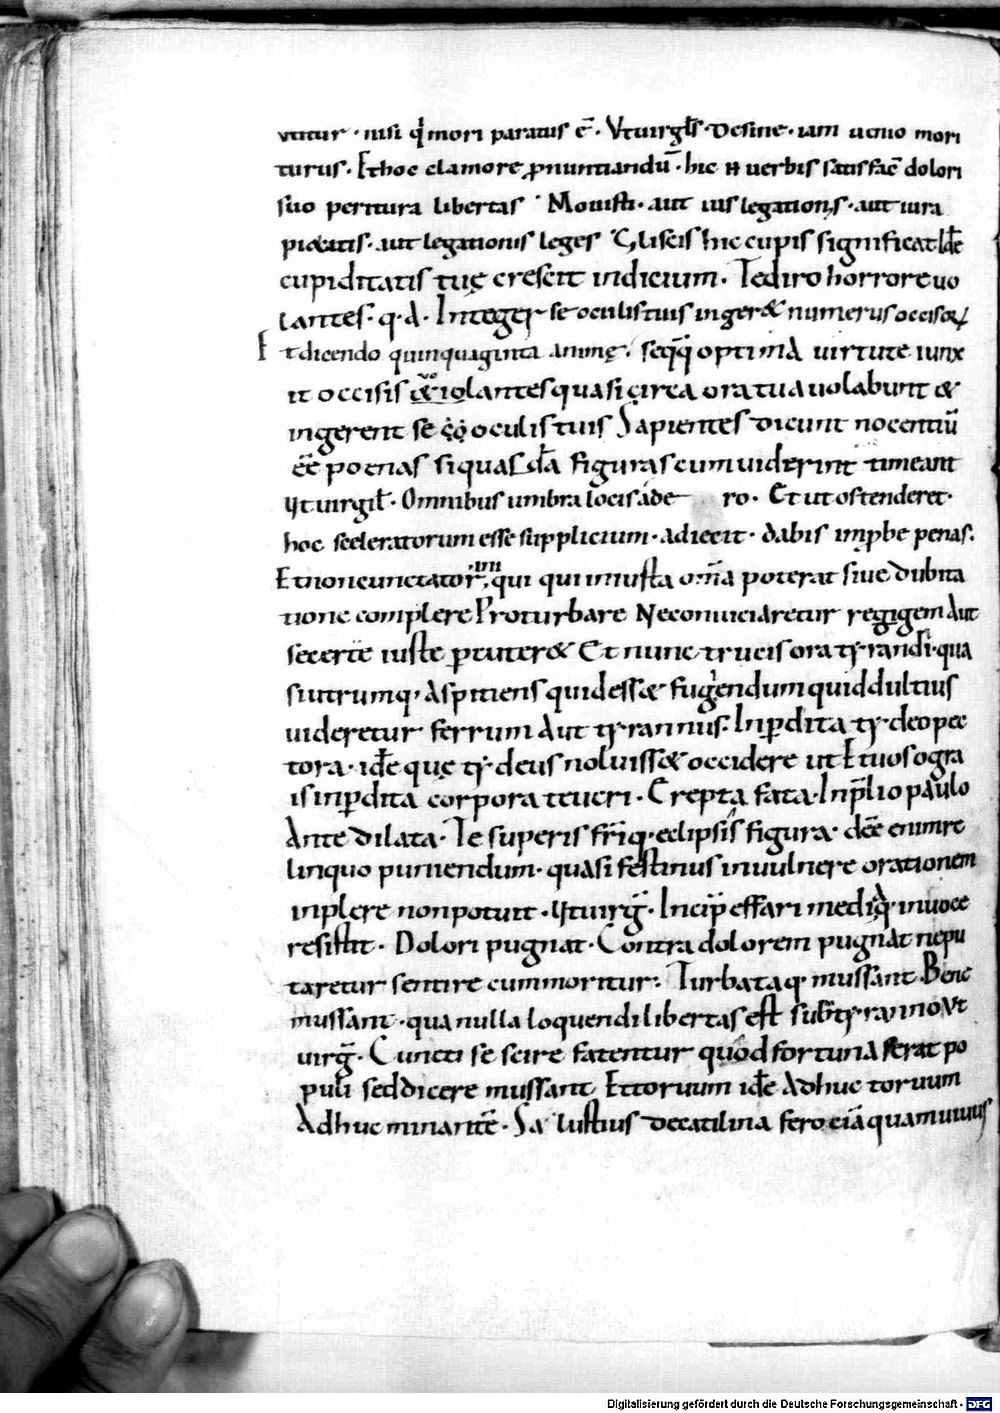 utitur · nisi qi mori paratus ē · Ut uirgl̄s · Desine · iam uenio mori
turus · Et hoc clamore pronuntiandū · hic n̄ uerbis satisfac̄ dolori
suo peritura libertas · Mouisti · aut ius legationis · aut iura
pietatis · aut legationis leges Gliscis hic cupis significat id̄e
cupiditatis tuę crescit indicium · Te diro horrore uo
lantes · q · d · Integer se oculis tuis inger& numerus occisoꝝ
Et dicendo quinquaginta animę · optima uirtute iunx
it occisis uolantes quasi circa ora tua uolabunt &
ingerent se oculis tuis Sapientes dicunt nocentiū
ēē poenas si quasdā figuras cum uiderint timeant
Ut uirgil̄ · Omnibus umbra locis ade ro · Et ut ostenderet ·
hoc sceleratorum esse supplicium · adiecit · dabis imp̱be penas ·
Et non cunctator qui qui iniusta om̄a poterat siue dubita
tione complere Proturbare Ne conuiciaretur regigem Aut
iuste ꝑcuter& Et nunc trucis ora ty·randi · qua
si utrumq; Aspitiens quid ess& fugiendum quid dultius
uideretur ferrum Aut ty·rannus · Inꝑdita ty·deo pec
tora · id̄e quę ty·deus noluiss& occidere ut Et uos ogra
is inꝑdita corpora teucri · Erepta fata · In p̄lio paulo
Ante Dilata · Te superis fr̄iq · eclipsis figura · dēē enim re
linquo puniendum · quasi festinus in uulnere orationem
inplere non potuit · Ut uirḡ · Incip̄ effari mediaq; in uoce
resistit · Dolori pugnat · Contra dolorem pugnat ne pu
taretur sentire cum moritur : Turbataq mussant · Bene
mussant · qua nulla loquendi libertas est sub ty·ranno Ut
uirḡ · Cuncti se scire fatentur quod fortuna ferat po
puli sed dicere mussant Et toruum id̄e Adhuc toruum
Adhuc minantē · Salustius de catilina ferociā quam uiuus